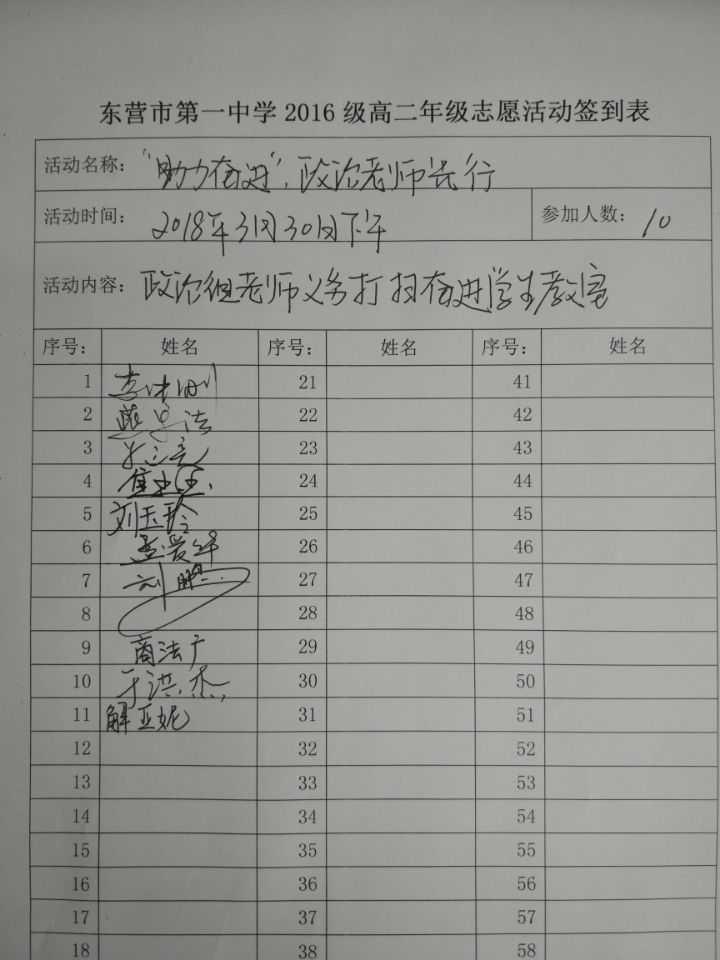 东营市第一中学2016级高二年级志愿活动签到表
活动名称：“助力奋进”，政治老师先行
活动时间：2018年3月30日下午 参加人数：10
活动内容：政治组老师义务打扫奋进学生教室
序号： 姓名 序号： 姓名 序号： 姓名
1 21 41
2 22 42
3 23 43
4 24 44
5 刘玉玲 25 45
6 孟爱华 26 46
7 刘鹏 27 47
8 28 48
9 商法广 29 49
10 于洪杰 30 50
11 解亚妮 31 51
12 32 52
13 33 53
14 34 54
15 35 55
16 36 56
17 37 57
18 38 58